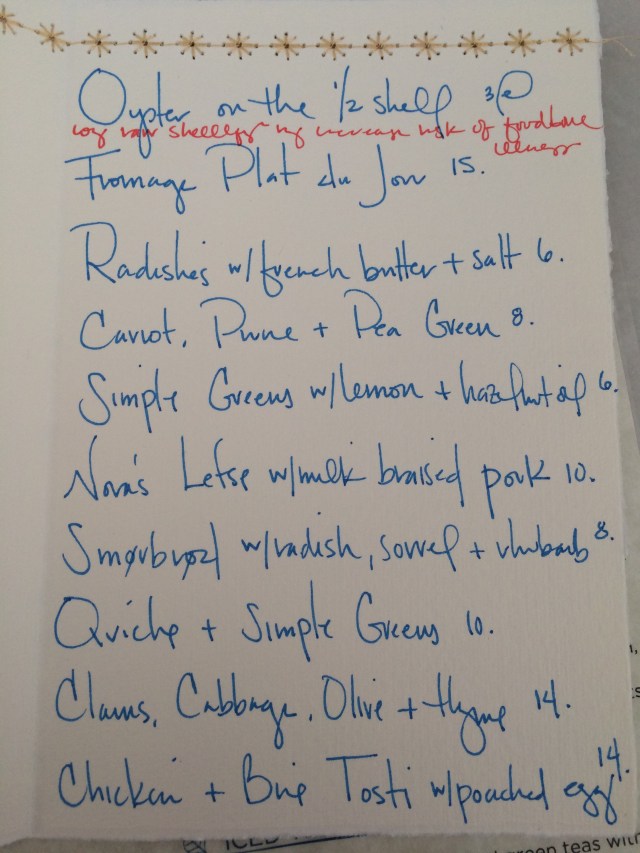 Oyster on the 1/2 shelf 3@
raw shellfish may increase risk of foodborne
illness
Fromage Plat du Jour 15.
Radishes w/french butter + salt 6.
Carrot, Prune + Pea Green 8.
Simple Greens w/lemon + hazelnut oil 6.
Nora's Lefse w/milk braised pork 10.
Smørbrød w/radish, sorrel + rhubarb 8.
Quiche + Simple Greens 10.
Clams, Cabbage, Olive + thyme 14.
Chicken + Brie Tosti w/poached egg 14.
ICED
green teas with